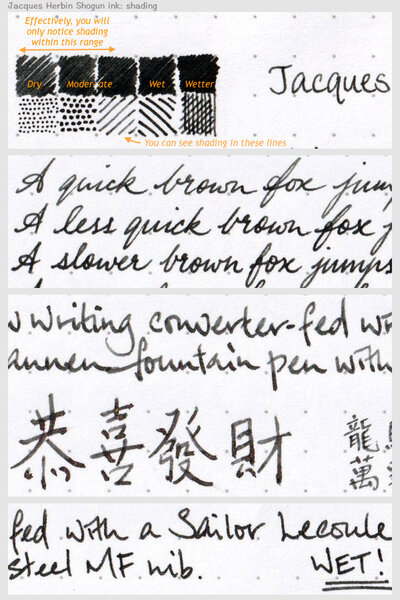 Jacques Herbin Shogun ink: shading
Effectively, you will
only notice shading
within this range
Dry Moderate Wet Wetter
Jacques
You can see shading in these lines
A quick brown fox jump
A less quick brown fox j
A slower brown fox jumps
w writing converter-fed wi
annen fountain pen with
恭喜發財
龍
萬
fed with a Sailor Lecoule
steel MF nib. WET!